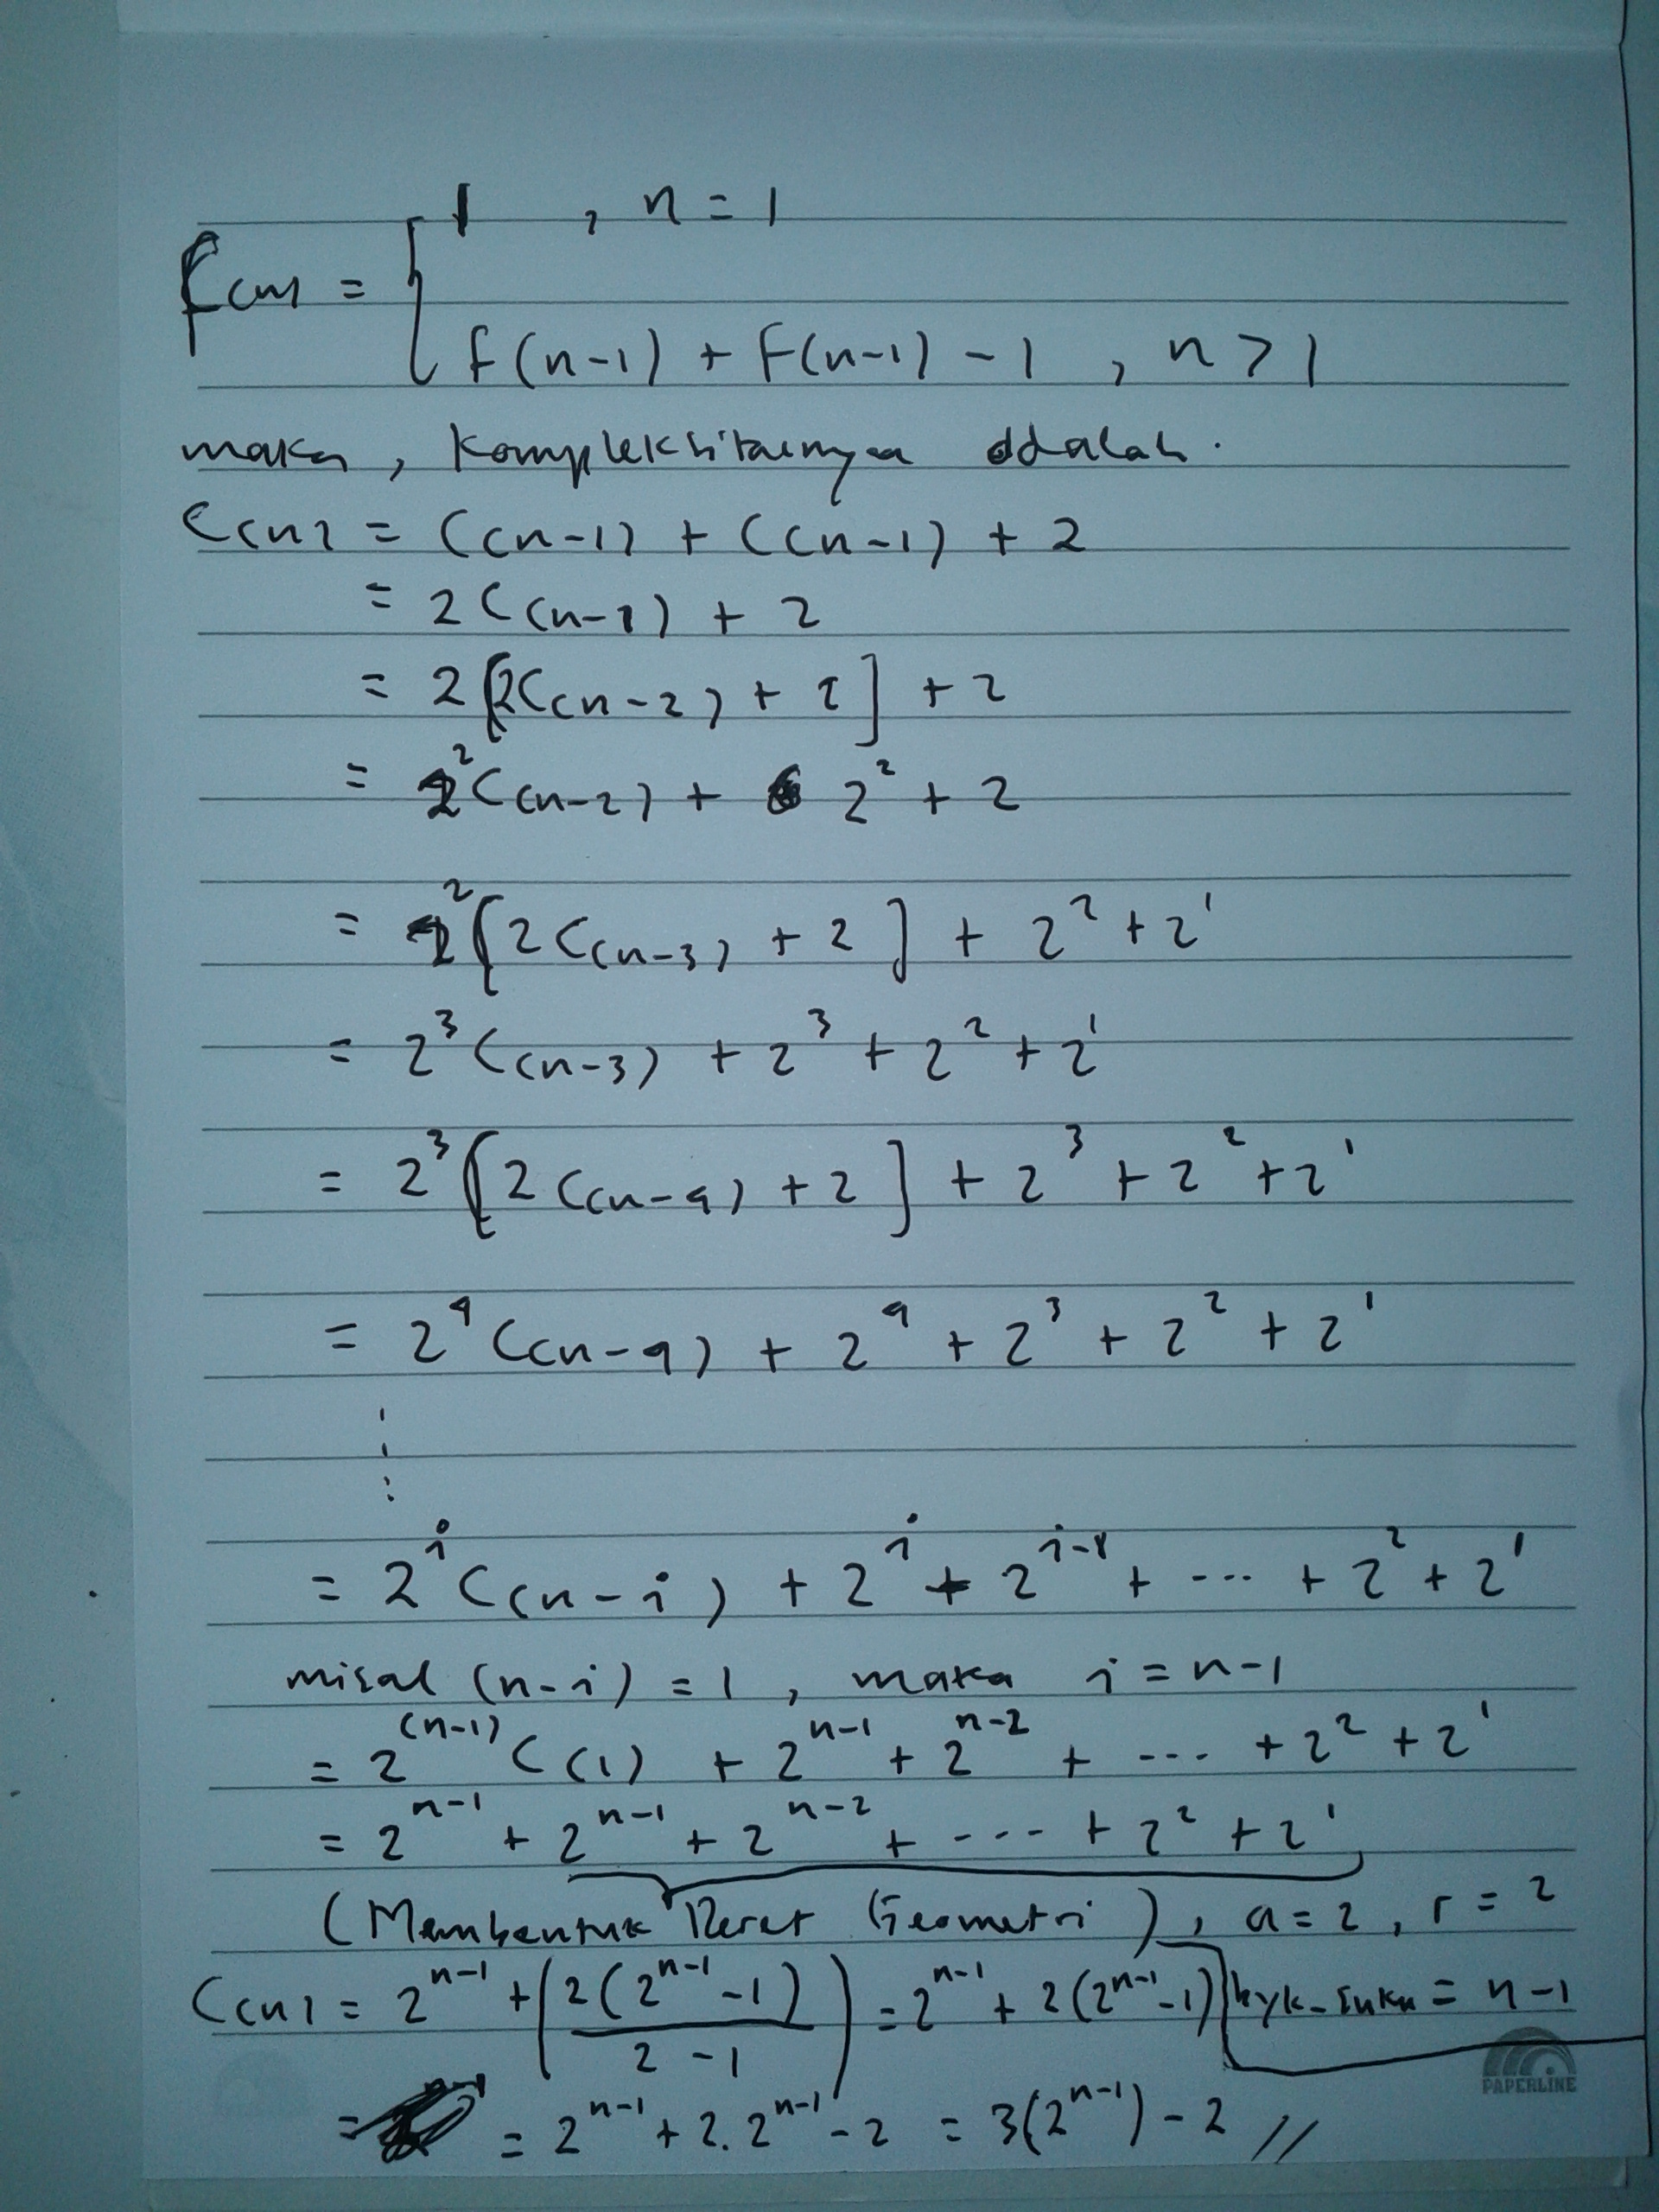 1 , n = 1
f(n) = {
f(n-1) + f(n-1) - 1 , n > 1
maka, kompleksitasnya adalah.
C(n) = C(n-1) + C(n-1) + 2
= 2C(n-1) + 2
= 2[2C(n-2) + 2] + 2
= 2²C(n-2) + 2² + 2
= 2²[2C(n-3) + 2] + 2² + 2¹
= 2³C(n-3) + 2³ + 2² + 2¹
= 2³[2C(n-4) + 2] + 2³ + 2² + 2¹
= 2⁴C(n-4) + 2⁴ + 2³ + 2² + 2¹
⋮
= 2^i C(n-i) + 2^i + 2^(i-1) + ... + 2² + 2¹
misal (n-i) = 1, maka i = n-1
= 2^(n-1) C(1) + 2^(n-1) + 2^(n-2) + ... + 2² + 2¹
= 2^(n-1) + 2^(n-1) + 2^(n-2) + ... + 2² + 2¹
(Membentuk Deret Geometri), a = 2, r = 2
C(n) = 2^(n-1) + (2(2^(n-1) - 1) / 2 - 1) = 2^(n-1) + 2(2^(n-1) - 1) byk-suku = n-1
= = 2^(n-1) + 2.2^(n-1) - 2 = 3(2^(n-1)) - 2 //
PAPERLINE